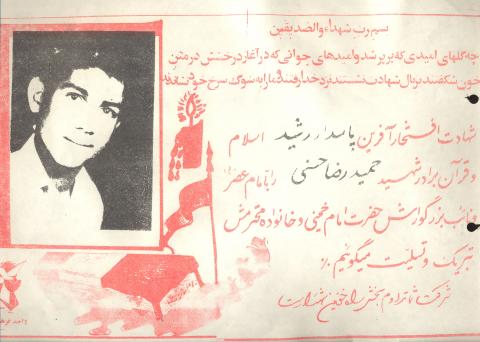 بسم رب شهداء والصدیقین
چه گلهای امیدی که پرپر شد و امیدهای جوانی که در آغاز درخشش در متن
خون شکفتند بر بال شهادت نشستند نزد خدا رفتند و ما را به سوگ سرخ خود نشاندند
شهادت افتخار آفرین پاسدار رشید اسلام
و قرآن برادر شهید حمید رضا حسنی را بامام عصر
و نائب بزرگوارش حضرت امام خمینی و خانواده محترمش
تبریک و تسلیت میگوئیم
شرکت ما تداوم بخش راه خونین شهداست
واحد